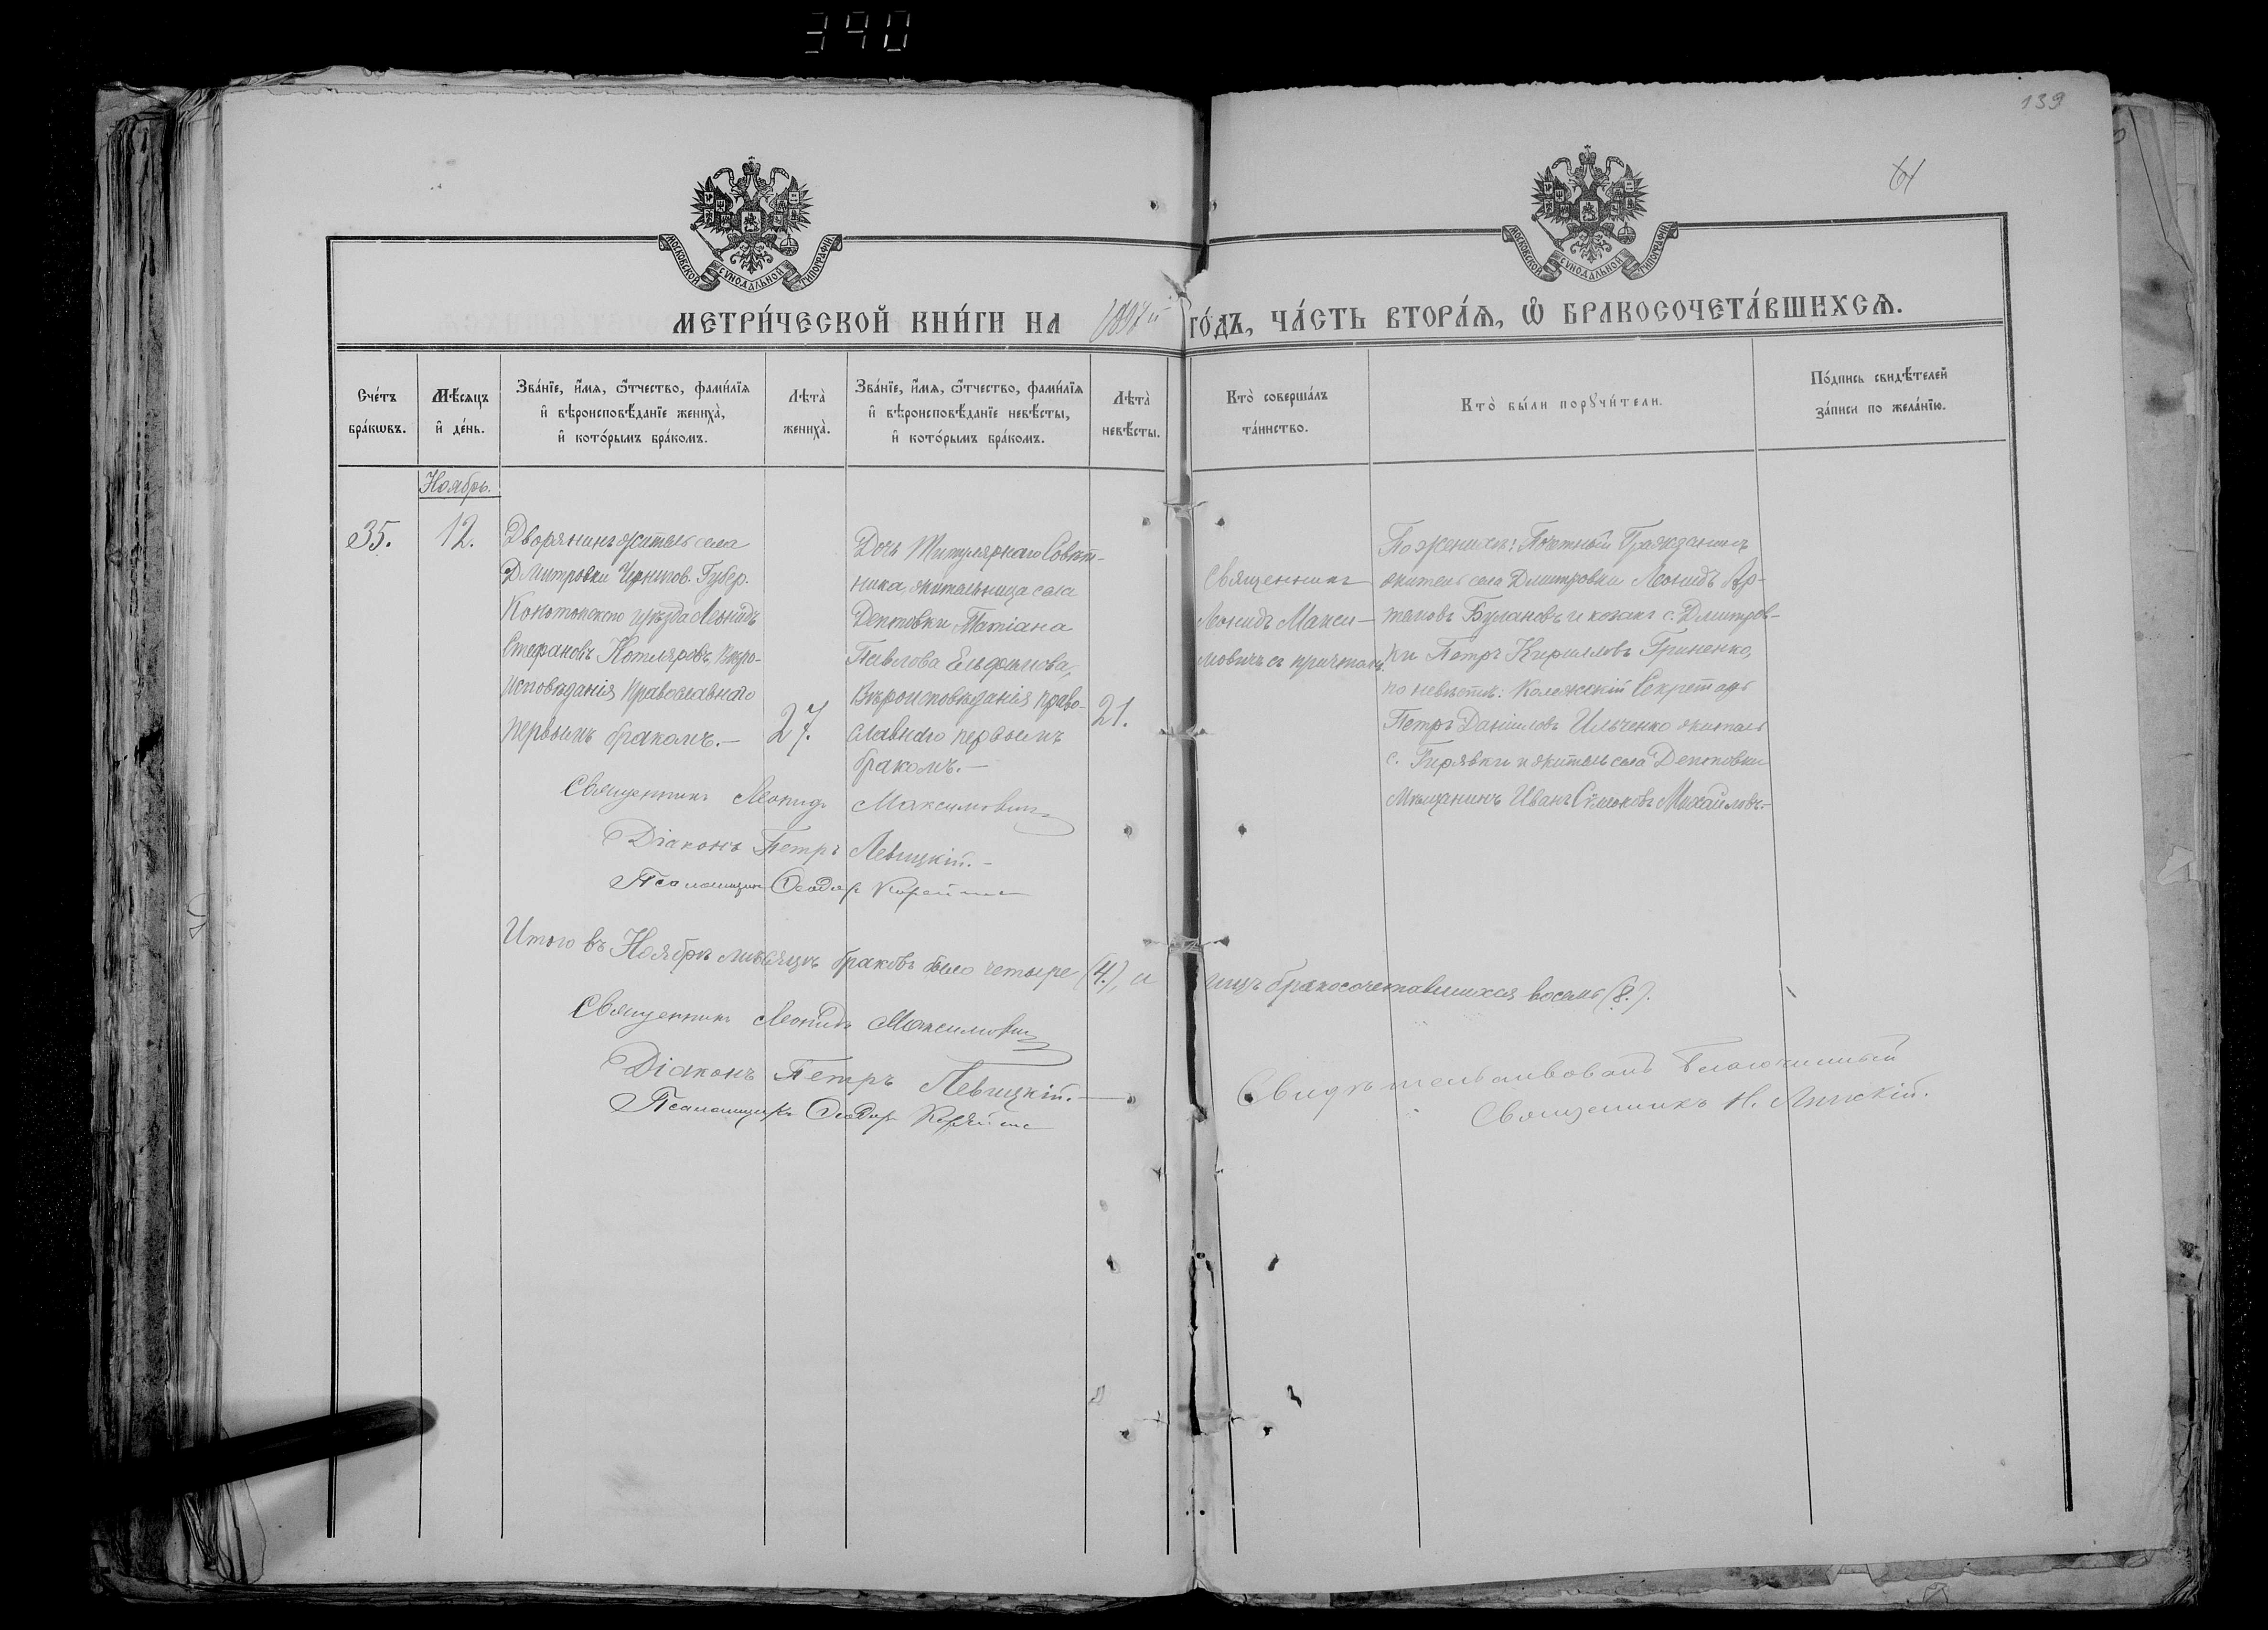 390
139
61
МОСКОВСКОЙ СѴНОДАЛЬНОЙ ТИПОГРАФІИ
МОСКОВСКОЙ СѴНОДАЛЬНОЙ ТИПОГРАФІИ
МЕТРИ́ЧЕСКОЙ КНИ́ГИ НА 1897 й ГО́ДЪ, ЧА́СТЬ ВТОРА́Ѧ, Ѽ БРАКОСОЧЕТА́ВШИХСѦ.
Сче́тъ бра́кѡвъ.
Мѣ́сѧцъ и҆ де́нь.
Зва́нїе, и҆́мѧ, ѻ҆́тчество, фами́лїѧ и҆ вѣроисповѣ́данїе жениха̀, и҆ кото́рымъ бра́комъ.
Лѣта̀ жениха̀.
Зва́нїе, и҆́мѧ, ѻ҆́тчество, фами́лїѧ и҆ вѣроисповѣ́данїе невѣ́сты, и҆ кото́рымъ бра́комъ.
Лѣта̀ невѣ́сты.
Кто̀ соверша́лъ та́инство.
Кто̀ бы́ли порꙋчи́тели.
По́дпись свидѣ́телей за́писи по жела́нїю.
Ноябрь.
35.
12.
Дворянинъ житель села
Дмитровки Чернигов. Губер.
Конотопскаго уѣзда Леонидъ
Стефановъ Котляровъ, Вѣро-
исповѣданія Православнаго
первымъ бракомъ.—
27.
Дочь Титулярнаго Совѣт-
ника, жительница села
Дептовки, Татіана
Павлова Ельфимова,
Вѣроисповѣданія право-
славнаго первымъ
бракомъ.—
21.
Священникъ
Леонидъ Макси-
мовичъ съ причтомъ.
По женихѣ: Почетный Гражданинъ
житель села Дмитровки Леонидъ Ар-
темовъ Булановъ и козакъ с. Дмитров-
ки Петръ Кирилловъ Гриненко,
по невѣстѣ: Колежскій Секретарь
Петръ Даніиловъ Ильченко житель
с. Гирявки и житель села Дептовки
Мѣщанинъ Иванъ Симоновъ Михайловъ.—
Священникъ Леонидъ Максимовичъ
Діаконъ Петръ Левицкій.—
Псаломщикъ Ѳеодоръ
Итого въ Ноябрѣ мѣсяцѣ браковъ было четыре (4.), и лицъ бракосочетавшихся восемь (8.).
Священникъ Леонидъ Максимовичъ
Діаконъ Петръ Левицкій.—
Псаломщикъ Ѳеодоръ
Свидѣтельствовалъ Благочинный
Священникъ Н. Линскій.